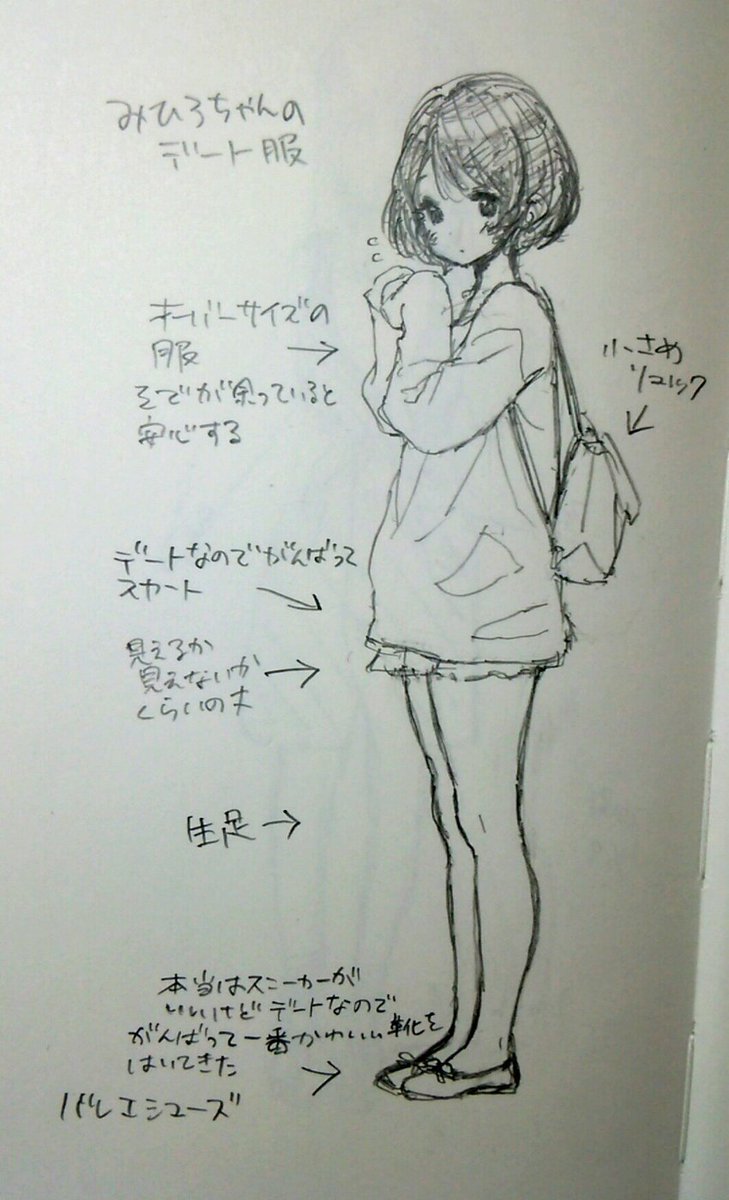 みひろちゃんの
デート服
オーバーサイズの
服
そでが余っていると
安心する
小さめ
リュック
デートなのでがんばって
スカート
見えるか
見えないか
くらいの丈
生足
本当はスニーカーが
いいけどデートなので
がんばって一番かわいい靴を
はいてきた
バレエシューズ